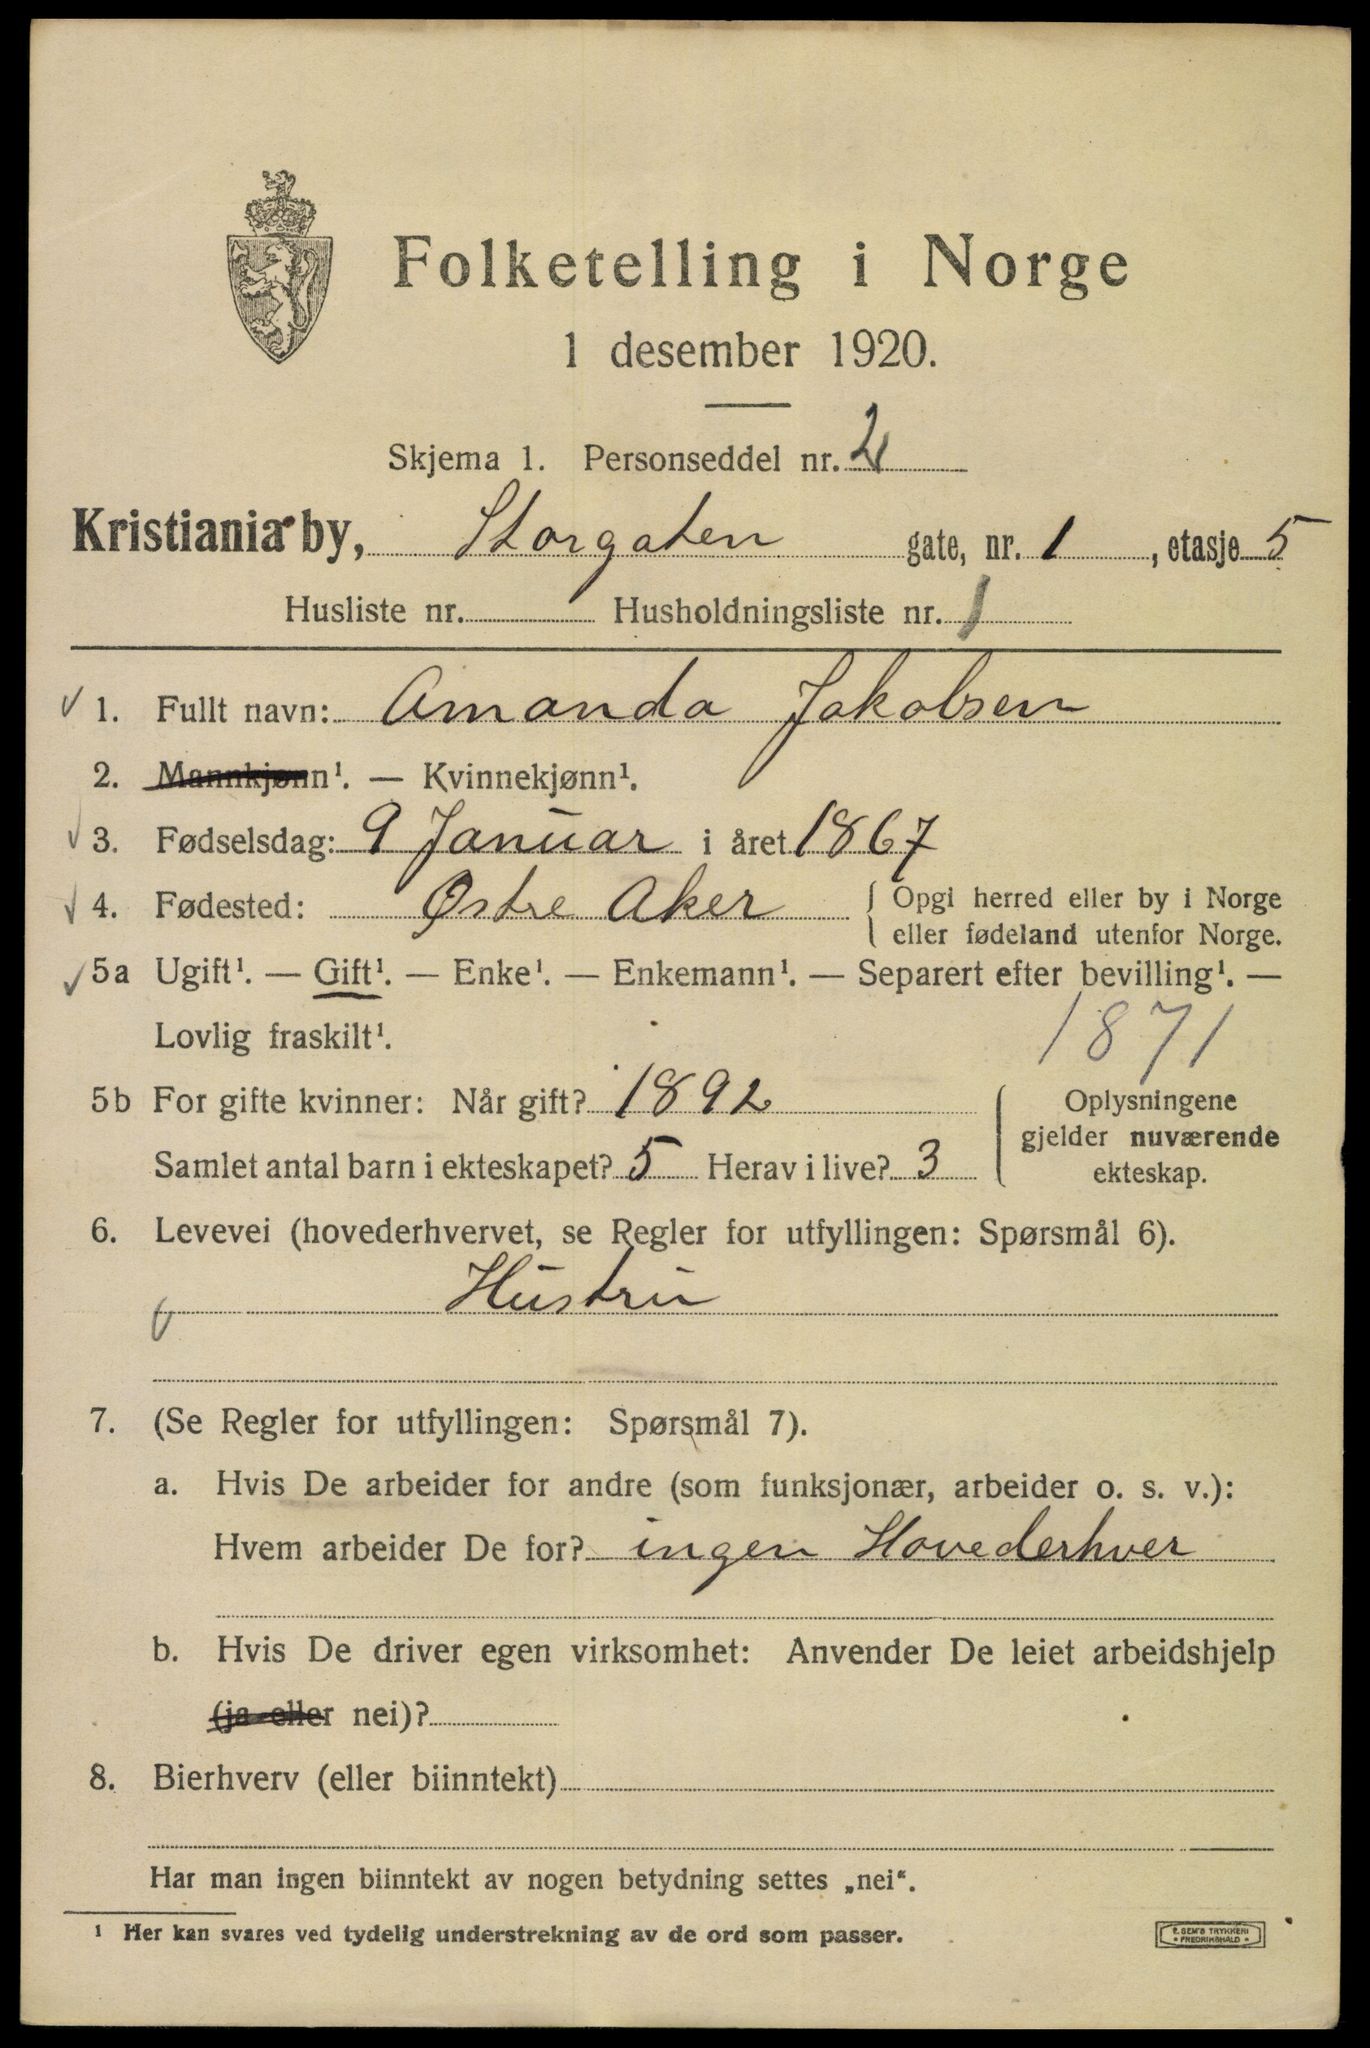 Folketelling i Norge
1 desember 1920.
Skjema 1. Personseddel nr. 2
Kristiania by, Storgaten gate, nr. 1, etasje 5
Husliste nr. Husholdningsliste nr. 1
1. Fullt navn: Amanda Jakobsen
2. Mannkjønn¹. — Kvinnekjønn¹.
3. Fødselsdag: 9 Januar i året 1867
4. Fødested: Østre Aker { Opgi herred eller by i Norge
eller fødeland utenfor Norge.
5a Ugift¹. — Gift¹. — Enke¹. — Enkemann¹. — Separert efter bevilling¹. —
Lovlig fraskilt¹. 1871
5b For gifte kvinner: Når gift? 1892
Samlet antal barn i ekteskapet? 5 Herav i live? 3
Oplysningene
gjelder nuværende
ekteskap.
6. Levevei (hovederhvervet, se Regler for utfyllingen: Spørsmål 6).
Hustru
7. (Se Regler for utfyllingen: Spørsmål 7).
a. Hvis De arbeider for andre (som funksjonær, arbeider o. s. v.):
Hvem arbeider De for? ingen Hovederhver
b. Hvis De driver egen virksomhet: Anvender De leiet arbeidshjelp
(ja eller nei)?
8. Bierhverv (eller biinntekt)
Har man ingen biinntekt av nogen betydning settes „nei“.
¹ Her kan svares ved tydelig understrekning av de ord som passer.
E. SEM'S TRYKKERI
• FREDRIKSHALD •